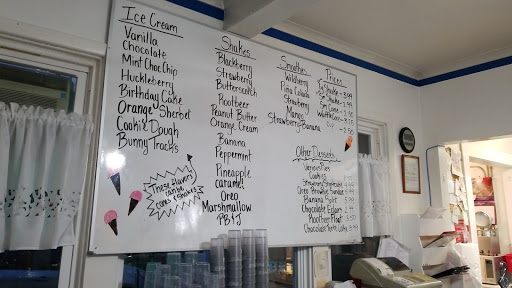 Ice Cream
Vanilla
Chocolate
Mint Choc Chip
Huckleberry
Birthday Cake
Orange Sherbet
Cookie Dough
Bunny Tracks
These flavors
can be
cones + shakes
Shakes
Blackberry
Strawberry
Butterscotch
Rootbeer
Peanut Butter
Orange Cream
Banana
Peppermint
Pineapple
caramel
Oreo
Marshmallow
PB + J
Smoothies
Wildberry
Pina Colada
Strawberry
Mango
Strawberry-Banana
Prices
Other Desserts
Various Pies
Cookies
Strawberry Shortcake
Oreo Brownie Sundae
Banana Split
Chocolate Eclairs
Rootbeer Float
Chocolate Torte Cake